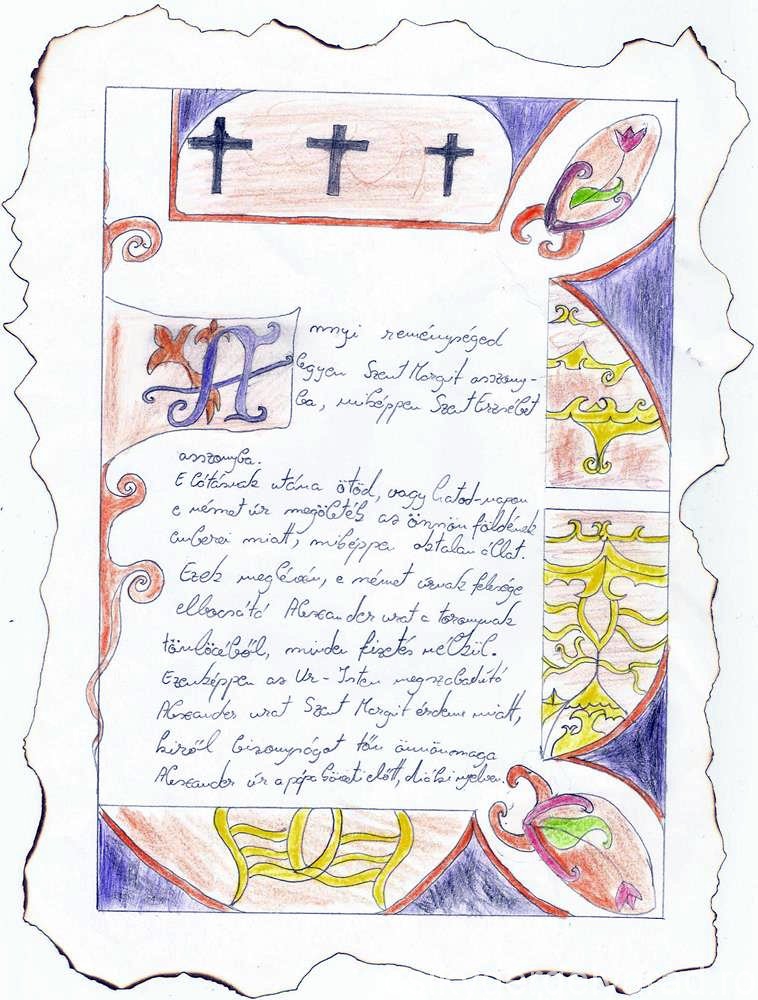 Annyi reménységed
legyen Szent Margit asszony-
ba, miképpen Szent Erzsébet
asszonyba.
E látásnak utána ötöd, vagy hatod-napon
e német úr megöleték az önnön földének
emberei miatt, miképpen oktalan állat.
Ezek meglévén, e német úrnak felesége
elbocsátá Alexander urat a toronynak
tömlöcéből, minden fizetés nélkül.
Ezenképpen az Úr-Isten megszabadító
Alexander urat Szent Margit érdeme miatt,
kiről bizonyságot tőn önnönmaga
Alexander úr a pápa követi előtt, diáki nyelven.